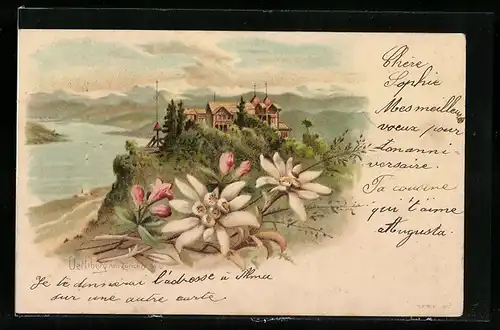 Chère
Sophie
Mes meilleurs
voeux pour
ton anni-
versaire.
Ta cousine
qui t'aime
Augusta.
Uetliberg
Je te donnerai l'adresse à Alma
sur une autre carte.